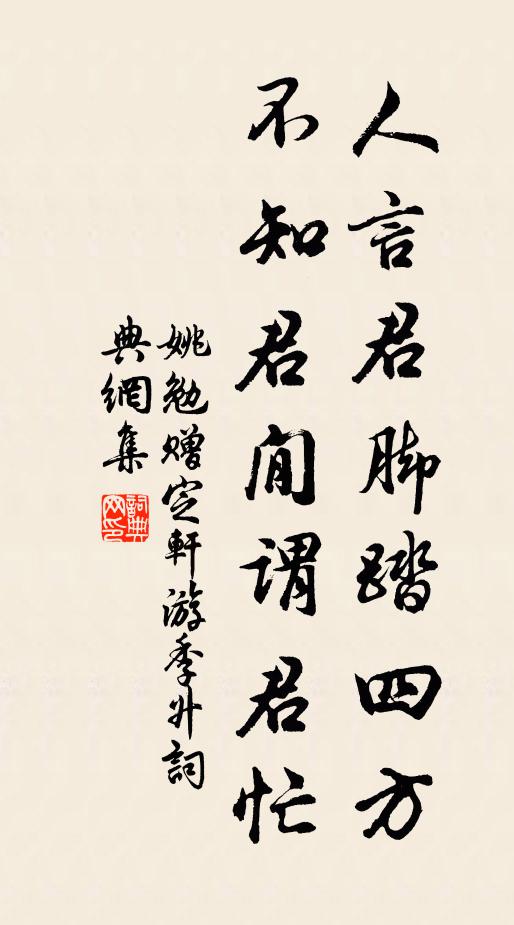 人言君脚踏四方
不知君閒謂君忙
姚勉贈定軒游季升詞
典網集
詞典
网印